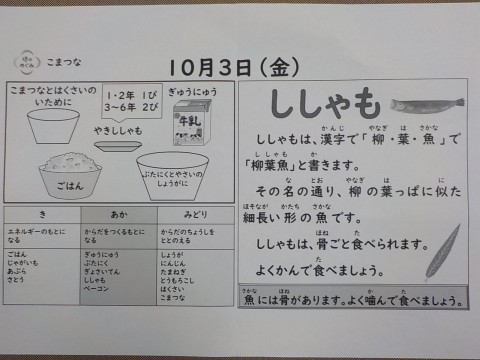 ほのめぐみ
こまつな
10月3日(金)
こまつなとはくさいの
いために
1・2年 1び
3~6年 2び
ぎゅうにゅう
牛乳
やきししゃも
ごはん
ぶたにくとやさいの
しょうがに
き
あか
みどり
エネルギーのもとに
なる
からだをつくるもとに
なる
からだのちょうしを
ととのえる
ごはん
じゃがいも
あぶら
さとう
ぎゅうにゅう
ぶたにく
ぎょさいてん
ししゃも
ベーコン
しょうが
にんじん
たまねぎ
とうもろこし
はくさい
こまつな
ししゃも
かんじ やなぎ は さかな
ししゃもは、漢字で「柳・葉・魚」で
ししゃも か
「柳葉魚」と書きます。
な とお やなぎ は に
その名の通り、柳の葉っぱに似た
ほそなが かたち さかな
細長い形の魚です。
ほね た
ししゃもは、骨ごと食べられます。
た
よくかんで食べましょう。
さかな ほね か た
魚には骨があります。よく噛んで食べましょう。